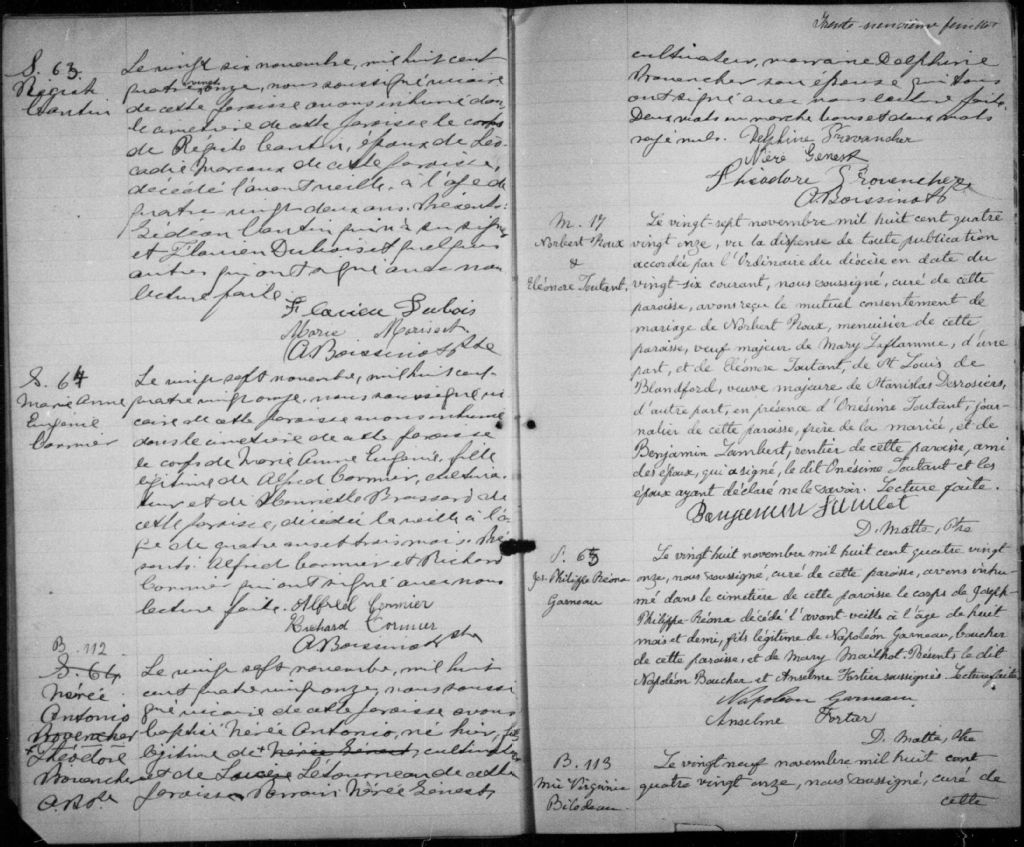 S. 63.
Régiste
Cantin
Le vingt six novembre, mil huit cent
quatre vingt onze, nous soussigné vicaire
de cette paroisse avons inhumé dans
le cimetière de cette paroisse le corps
de Régiste Cantin, époux de Léo-
cadie Marcoux de cette paroisse,
décédé l'avant veille, à l'âge de
quatre vingt deux ans. Présents
Gédéon Cantin qui n'a su signer
et Flavien Dubois et quelques
autres qui ont signé avec nous
lecture faite.
Flavien Dubois
Marie Morisset
A Boissinot Ptre
S. 64
Marie Anne
Eugénie
Cormier
Le vingt sept novembre, mil huit cent
quatre vingt onze, nous soussigné vi-
caire de cette paroisse avons inhumé
dans le cimetière de cette paroisse
le corps de Marie Anne Eugénie, fille
légitime de Alfred Cormier, cultiva-
teur et de Henriette Brassard de
cette paroisse, décédée la veille à l'â-
ge de quatre ans et trois mois. Pré-
sents Alfred Cormier et Richard
Cormier qui ont signé avec nous
lecture faite. Alfred Cormier
Richard Cormier
A Boissinot Ptre
B. 112
S. 64
Nérée
Antonio
Provencher
+ Théodore
Provencher
A.B. Ptre
Le vingt sept novembre, mil huit
cent quatre vingt onze, nous soussi-
gné vicaire de cette paroisse avons
baptisé Nérée Antonio, né hier, fils
légitime de + Nérée Genest, cultivateur
et de Létourneau de cette
paroisse. Parrain Nérée Genest,
Trente neuvième feuillet
cultivateur, marraine Delphine
Provencher son épouse qui tous
ont signé avec nous lecture faite.
Deux mots en marche bons et deux mots
rayé nuls. Delphine Provancher
Néré Genest
Théodore Provencher
A Boissinot
M. 17
Norbert Proux
&
Eléonore Toutant.
Le vingt-sept novembre mil huit cent quatre
vingt onze, vu la dispense de toute publication
accordée par l'Ordinaire du diocèse en date du
vingt-six courant, nous soussigné, curé de cette
paroisse, avons reçu le mutuel consentement de
mariage de Norbert Proux, menuisier de cette
paroisse, veuf majeur de Mary Laflamme, d'une
part, et de Eléonore Toutant, de St Louis de
Blandford, veuve majeure de Stanislas Desrosiers,
d'autre part, en présence d'Onésime Toutant, jour-
nalier de cette paroisse, frère de la mariée, et de
Benjamin Lambert, rentier de cette paroisse, ami
des époux, qui a signé, le dit Onésime Toutant et les
époux ayant déclaré ne le savoir. Lecture faite.
Benjamin
D. Matte, Ptre
S. 65
Jos. Philippe Réona
Garneau
Le vingt huit novembre mil huit cent quatre vingt
onze, nous soussigné, curé de cette paroisse, avons inhu-
mé dans le cimetière de cette paroisse le corps de Joseph-
Philippe-Réona décédé l'avant-veille à l'âge de huit
mois et demi, fils légitime de Napoléon Garneau, boucher
de cette paroisse, et de Mary Mailhot. Présents le dit
Napoléon Boucher et Anselme Fortier soussignés. Lecture faite
Napoléon Garneau
Anselme Fortier
D. Matte, Ptre
B. 113
Mie Virginie
Bilodeau
Le vingt neuf novembre mil huit cent
quatre vingt onze, nous soussigné, curé de
cette